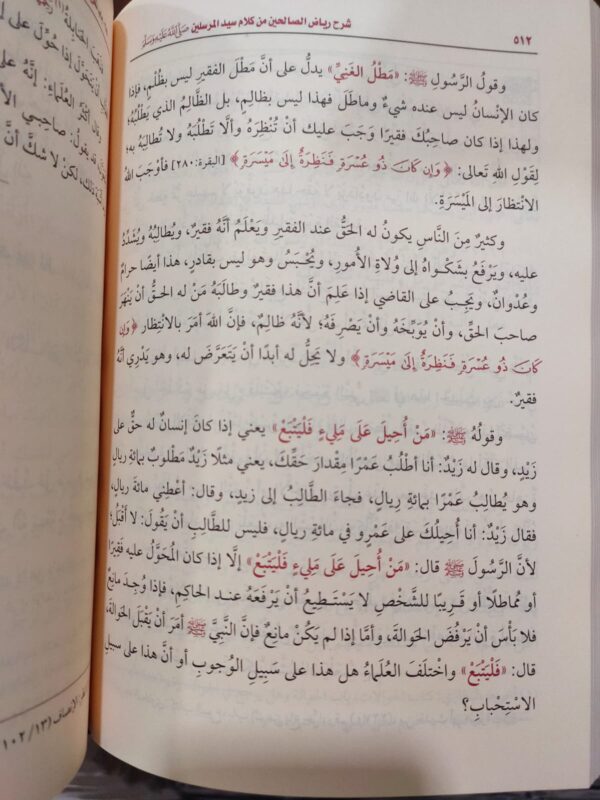 ٥١٢
شرح رياض الصالحين من كلام سيد المرسلين ﷺ
وقولُ الرَّسُولِ ﷺ: «مَطْلُ الغَنِيِّ» يدلُّ على أنَّ مَطْلَ الفقيرِ ليس بظُلْمٍ، فإذا
كان الإنْسانُ ليس عنده شيءٌ وماطَلَ فهذا ليس بظالِمٍ، بل الظَّالِمُ الذي يَطْلُبُهُ؛
ولهذا إذا كان صاحِبُكَ فقيرًا وَجَبَ عليك أنْ تُنْظِرَهُ وألَّا تَطْلُبَهُ ولا تُطالِبَهُ به؛
لِقَوْلِ اللهِ تعالى: ﴿وَإِن كَانَ ذُو عُسْرَةٍ فَنَظِرَةٌ إِلَىٰ مَيْسَرَةٍ﴾ [البقرة:٢٨٠] فأوْجَبَ اللهُ
الانْتِظارَ إلى المَيْسَرَةِ.
وكثيرٌ مِنَ النَّاسِ يكونُ له الحَقُّ عند الفقيرِ ويَعْلَمُ أنَّهُ فقيرٌ، ويُطالِبُهُ ويُشَدِّدُ
عليه، ويَرْفَعُ بِشَكْواهُ إلى وُلاةِ الأُمورِ، ويُحْبَسُ وهو ليس بقادرٍ، هذا أيضًا حرامٌ
وعُدْوانٌ، ويَجِبُ على القاضي إذا عَلِمَ أنَّ هذا فقيرٌ وطالَبَهُ مَنْ له الحقُّ أنْ يَنْهَرَ
صاحبَ الحقِّ، وأنْ يُوَبِّخَهُ وأنْ يَصْرِفَهُ؛ لأنَّهُ ظالِمٌ، فإنَّ اللهَ أمَرَ بالانْتِظارِ ﴿وَإِن
كَانَ ذُو عُسْرَةٍ فَنَظِرَةٌ إِلَىٰ مَيْسَرَةٍ﴾ ولا يَحِلُّ له أبدًا أنْ يَتَعَرَّضَ له، وهو يَدْرِي أنَّهُ
فقيرٌ.
وقولُهُ ﷺ: «مَنْ أُحِيلَ عَلَى مَلِيءٍ فَلْيَتْبَعْ» يعني إذا كانَ إنسانٌ له حقٌّ على
زَيْدٍ، وقال له زَيْدٌ: أنا أطْلُبُ عَمْرًا مِقْدارَ حَقِّكَ، يعني مثلًا زَيْدٌ مَطْلوبٌ بمائةِ ريالٍ
وهو يُطالِبُ عَمْرًا بمائةِ رِيالٍ، فجاءَ الطَّالِبُ إلى زيدٍ، وقال: أعْطِني مائةَ ريالٍ،
فقال زَيْدٌ: أنا أُحِيلُكَ على عَمْرٍو في مائةِ ريالٍ، فليس للطَّالِبِ أنْ يَقُولَ: لا أقْبَلُ؛
لأنَّ الرَّسُولَ ﷺ قال: «مَنْ أُحِيلَ عَلَى مَلِيءٍ فَلْيَتْبَعْ» إلَّا إذا كان المُحَوَّلُ عليه فَقِيرًا
أو مُماطِلًا أو قَرِيبًا للشَّخْصِ لا يَسْتَطِيعُ أنْ يَرْفَعَهُ عند الحاكِمِ، فإذا وُجِدَ مانِعٌ
فلا بَأْسَ أنْ يَرْفُضَ الحَوالةَ، وأمَّا إذا لم يَكُنْ مانِعٌ فإنَّ النَّبيَّ ﷺ أمَرَ أنْ يَقْبَلَ الحَوالةَ،
قال: «فَلْيَتْبَعْ» واخْتَلَفَ العُلَماءُ هل هذا على سَبِيلِ الوُجوبِ أو أنَّ هذا على سبيلِ
الاسْتِحْبابِ؟